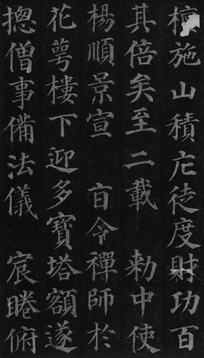 檀施山積庀徒度財功百
其倍矣至二載 勑中使
楊順景宣 旨令禪師於
花萼樓下迎多寶塔額遂
摠僧事備法儀 宸睠俯